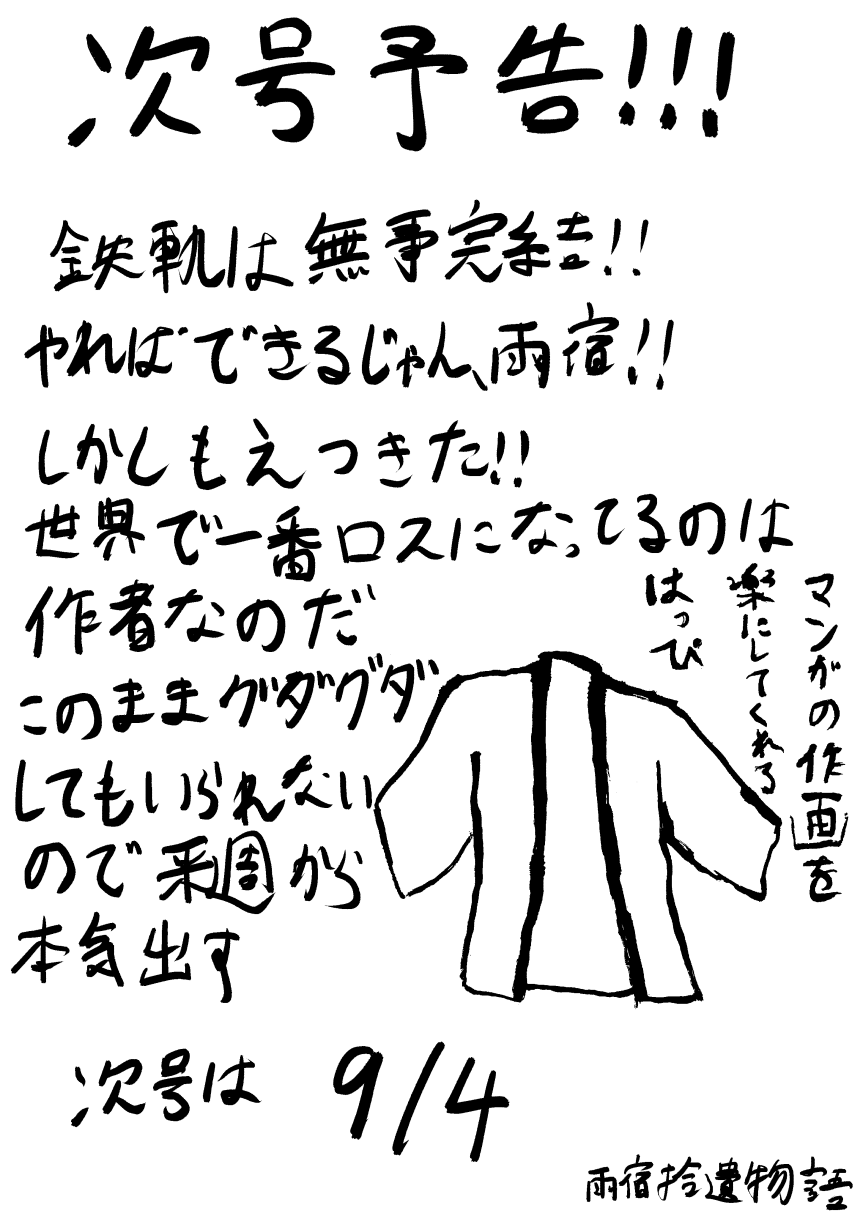 次号予告!!!
鉄軌は無事完結!!
やればできるじゃん、雨宿!!
しかしもえつきた!!
世界で一番ロスになってるのは
作者なのだ
このままグダグダ
してもいられない
ので来週から
本気出す
マンガの作画を
楽にしてくれる
はっぴ
次号は 9/4
雨宿拾遺物語